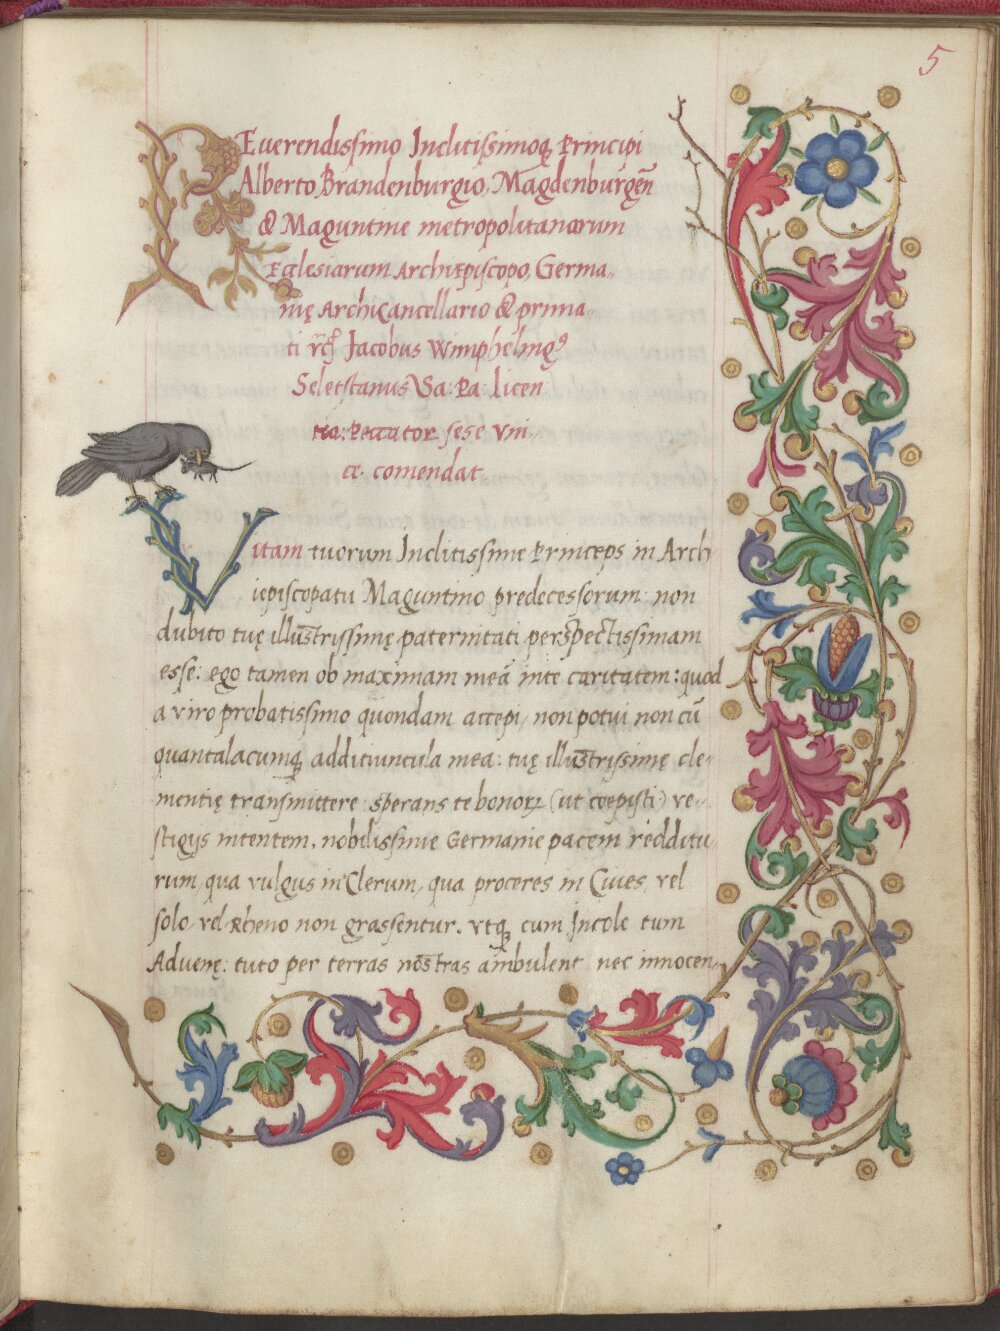 5
Reuerendissimo Inclitissimoq̢ Principi
Alberto Brandenburgio, Magdenburgeñ
& Maguntine metropolitanarum
Ecclesiarum Archiepiscopo, Germa„
nię Archicancellario & prima
ti Jacobus Wimphelingꝰ
Seletstanus Sa. Pa. licen
tio: Peccator sese vni
ce comendat
Vitam tuorum Inclitissime Princeps in Arch
iepiscopatu Maguntino predecessorum: non
dubito tuę illustrissimę paternitati perspectissimam
esse: ego tamen ob maximam meā inte caritatem: quod
a viro probatissimo quondam accepi, non potui non cū
quantalacumq̢ additiuncula mea: tuę illustrissimę cle-
mentię transmittere, sperans te bonoꝝ (ut coepisti) ve-
stigijs intentem, nobilissime Germanie pacem redditu
rum, qua vulgus in Clerum, qua proceres in Ciues, vel
solo, vel Rheno non grassentur. vtq̢ cum Incole tum
Aduenę: tuto per terras nostras ambulent nec innocen